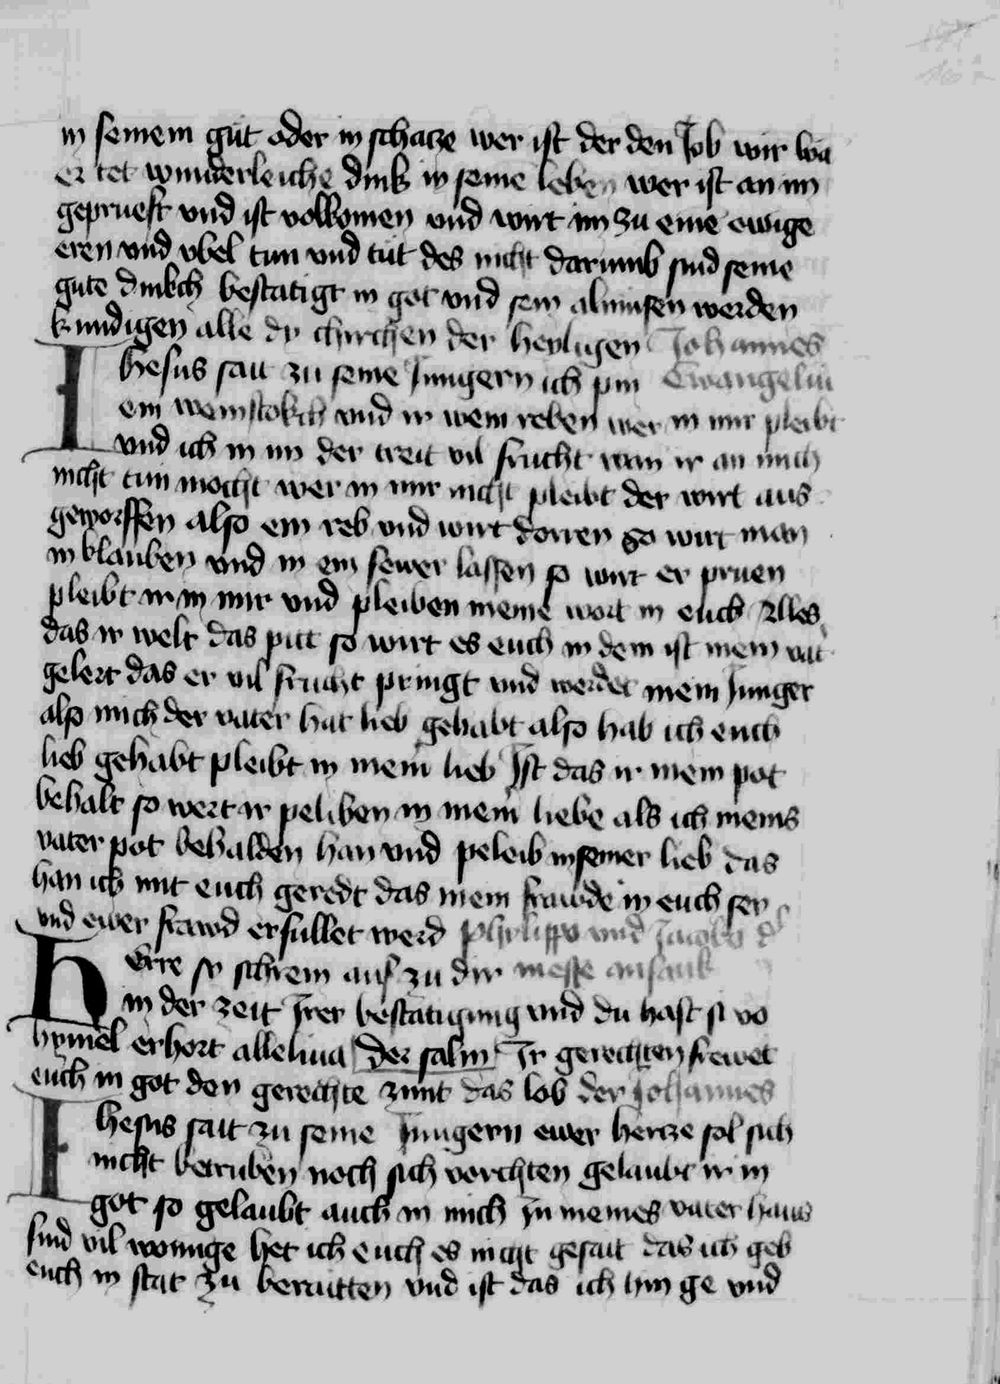 in seinem gut oder in schacze wer ist der den lob wir wa
er tet wunderleiche dink in seine leben wer ist an im
geprueft vnd ist volkomen vnd wirt im zu eine ewige
eren vnd vbel tun vnd tut des nicht darumb sind seine
gute dinkch bestatigt in got vnd sein almusen werden
kundigen alle dy chirchen der heyligen Johannes
Ihesus sait zu seine Jungern ich pin Ewangeliu
ein weinstokch vnd ir wein reben wer in mir pleibt
vnd ich in im der treit vil frucht wan ir an mich
nicht tun mocht wer in mir nicht pleibt der wirt aus
geworffen also ein reb vnd wirt dorren so wirt man
in klauben vnd in ein fewer lassen so wirt er pruen
pleibt ir in mir vnd pleiben meine wort in euch Alles
das ir welt das piit so wirt es euch in dem ist mein vat
gelert das er vil frucht pringt vnd werdet mein Junger
also mich der vater hat lieb gehabt also hab ich euch
lieb gehabt pleibt in mein lieb Ist das ir mein pot
behalt so wert ir peliben in mein liebe als ich meins
vater pot behalden han vnd peleib in seiner lieb das
han ich mit euch geredt das mein frawde in euch sey
vnd ewer frawd erfullet werd Phylippo vnd Jacoby d
Herre sy schrein auf zu dir messe anfank
in der zeit Irer bestatigung vnd du hast si vo
hymel erhort alleluia der salm Ir gerechten frewet
euch in got den gerechte zimt das lob der Johannes
Ihesus sait zu seine Jungern ewer hercze sol sich
nicht betruben noch sich vorchten gelaubt ir in
got so gelaubt auch in mich In meines vater haus
sind vil wonnge het ich euch es nicht gesait das ich geb
euch in stat zu beraitten vnd ist das ich hin ge vnd